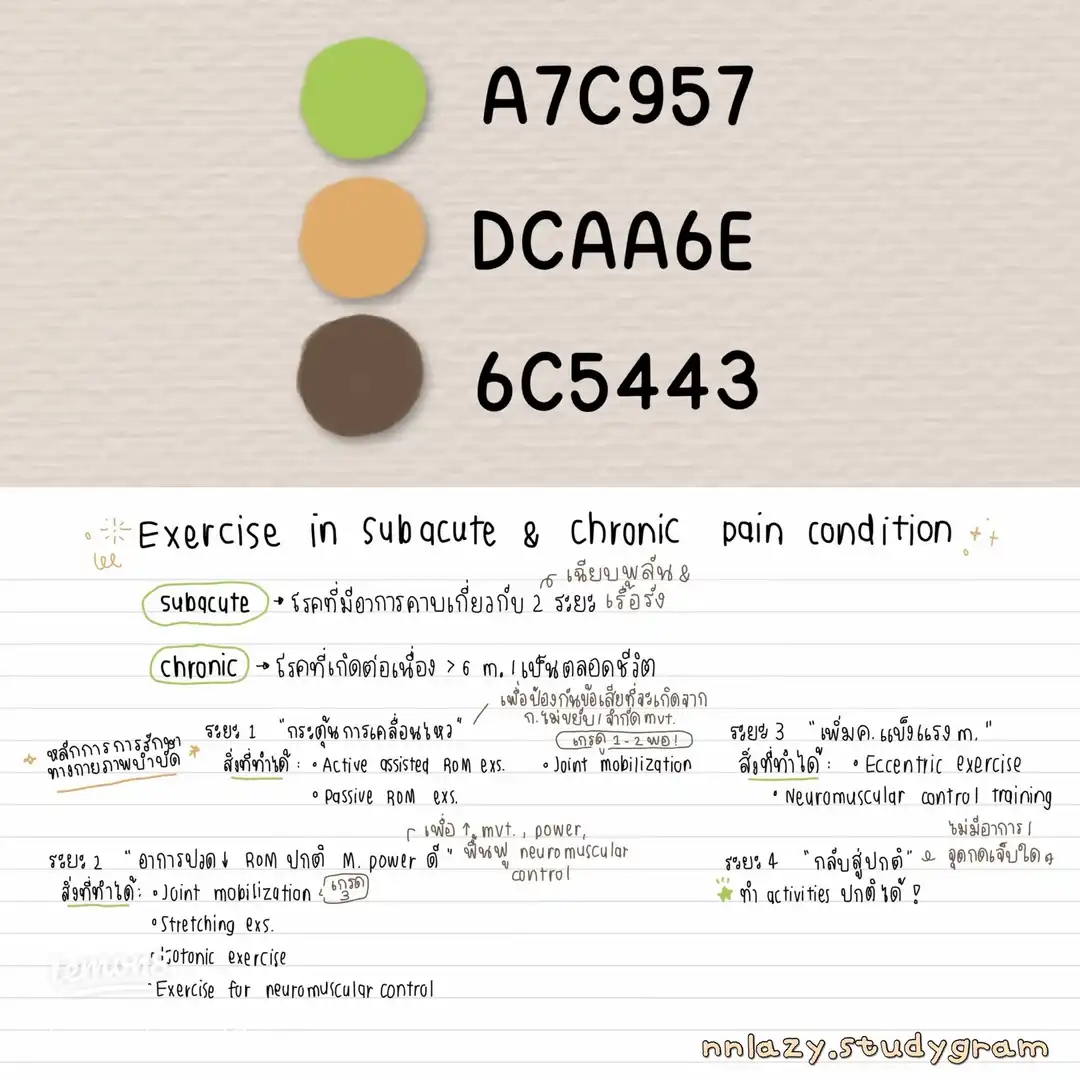 A7C957
DCAA6E
6C5443
Exercise in subacute & chronic pain condition
เฉียบพลัน &
subacute → โรคที่มีอาการคาบเกี่ยวกับ 2 ระยะ เรื้อรัง
chronic → โรคที่เกิดต่อเนื่อง > 6 m. / เป็นตลอดชีวิต
หลักการการรักษา
ทางกายภาพบำบัด
ระยะ 1 "กระตุ้นการเคลื่อนไหว"
เพื่อป้องกันข้อเสียที่จะเกิดจาก
ก.ไม่ขยับ / จำกัด mvt.
เกรด 1-2 พอ!
สิ่งที่ทำได้ : • Active assisted ROM exs. • Joint mobilization
• Passive ROM exs.
ระยะ 2 "อาการปวด↓ ROM ปกติ M. power ดี"
เพื่อ ↑ mvt., power,
ฟื้นฟู neuromuscular
control
สิ่งที่ทำได้ : • Joint mobilization เกรด 3
• Stretching exs.
• Isotonic exercise
• Exercise for neuromuscular control
ระยะ 3 "เพิ่มค.แข็งแรง m."
สิ่งที่ทำได้ : • Eccentric exercise
• Neuromuscular control training
ระยะ 4 "กลับสู่ปกติ"
ไม่มีอาการ /
จุดกดเจ็บใดๆ
ทำ activities ปกติได้ !
lemon8
nnlazy.studygram